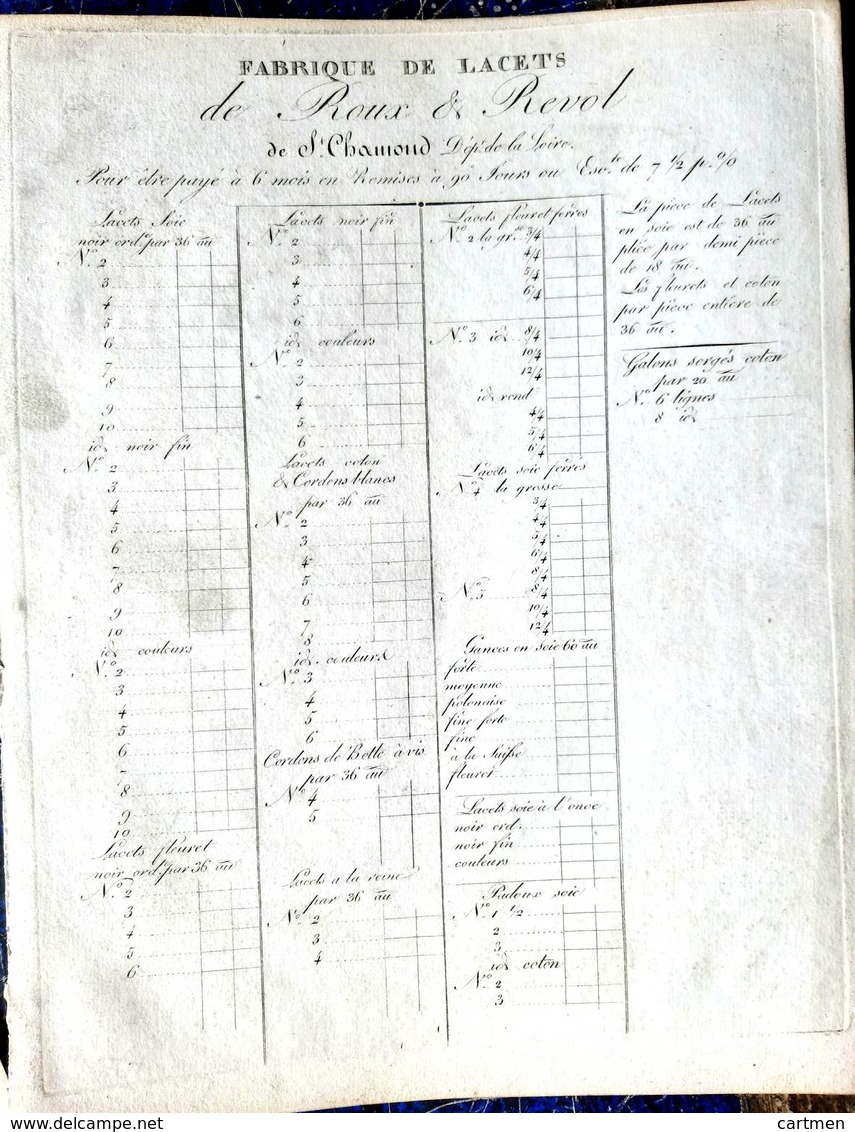 FABRIQUE DE LACETS
de Roux & Revol
de St Chamond Dépt de la Loire.
Pour être payé à 6 mois en Remises à 90 Jours ou Escte de 7 1/2 p.%
Lacets Soie
noir orde par 36 au
No. 2
3
4
5
6
7
8
9
10
id noir fin
No. 2
3
4
5
6
7
8
9
10
id couleurs
No. 2
3
4
5
6
7
8
9
10
Lacets fleuret
noir ord. par 36 au
No. 2
3
4
5
6
Lacets noir fin
No. 2
3
4
5
6
id couleurs
No. 2
3
4
5
6
Lacets coton
& Cordons blancs
par 36 au
No. 2
3
4
5
6
7
8
id. couleurs
No. 3
4
5
6
Cordons de Botte à vis
par 36 au
No. 4
5
Lacets a la reine
par 36 au
No. 2
3
4
Lacets fleuret ferrés
No. 2 la grse 3/4
4/4
5/4
6/4
No. 3 id 8/4
10/4
12/4
id rond
4/4
5/4
6/4
Lacets soie ferrés
No. 4 la grosse
3/4
4/4
5/4
6/4
8/4
No. 5 8/4
10/4
12/4
Gances en soie 60 au
forte
moyenne
polonaise
fine forte
fine
à la Suisse
fleuret
Lacets soie à l'once
noir ord.
noir fin
couleurs
Padoux soie
No. 1 1/2
2
3
id coton
No. 2
3
La pièce de Lacets
en soie est de 36 au
pliée par demi pièce
de 18 au.
Les fleurets et coton
par pièce entière de
36 au.
Galons sergés coton
par 20 au
No. 6 lignes
8 id
cartmen